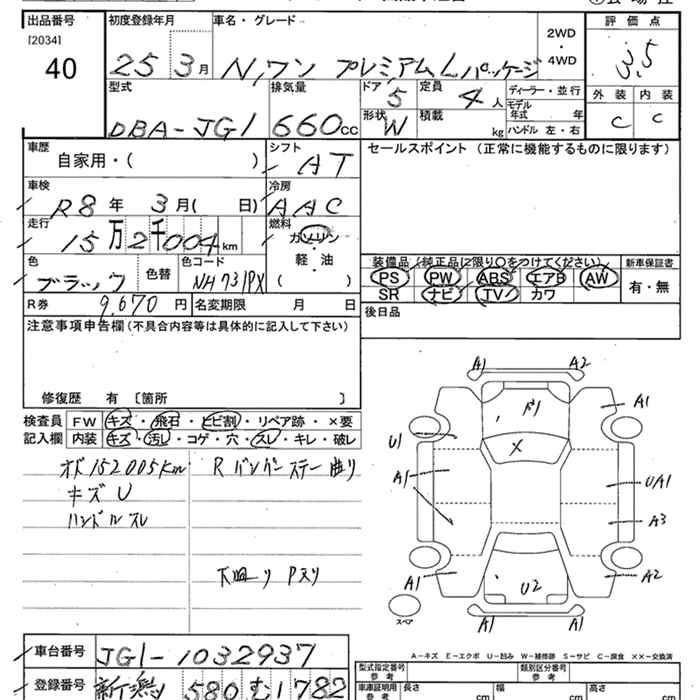 出品番号 初度登録年月 車名・グレード 評価点
[2034]
40
25 3月 N,ワン プレミアム Lパッケージ 2WD・4WD 3,5
型式 排気量 ドア 5 定員 4人 ディーラー・並行 外装 内装
DBA-JG1 660cc 形状 W 積載 kg モデル年式 年 ハンドル 左・右 C C
車歴 シフト セールスポイント (正常に機能するものに限ります)
自家用・( ) AT
車検 冷房
R8年 3月( 日) AAC
走行 燃料
15万2千004km ガソリン
軽・油
( )
色 色替 色コード 装備品(純正品に限り○をつけてください) 新車保証書
ブラック NH731PX PS PW ABS エアB AW 有・無
SR ナビ TV カワ
R券 9,670円 名変期限 月 日 後日品
注意事項申告欄(不具合内容等は具体的に記入して下さい)
修復歴 有 〔箇所 〕
検査員 FW キズ・飛石・ヒビ割・リペア跡・×要
記入欄 内装 キズ・汚し・コゲ・穴・スレ・キレ・破レ
オド152005km R バンパーステー曲り
キズ U
ハンドルスレ
下廻り Pスリ
A1 A2
A1
U1 X
A1 U/A1
A3
A1 U2 A2
A1 A1
スペア
A-キズ E-エクボ U-凹み W-補修跡 S-サビ C-腐食 ××-交換済
車台番号 JG1-1032937 型式指定番号 参考 類別区分番号 参考
登録番号 新潟 580 む 1782 車庫証明用 参考 長さ cm 幅 cm 高さ cm